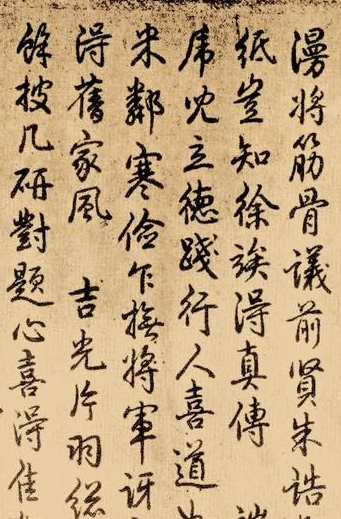 漫将筋骨議前賢朱誥
紙豈知徐矦得真傳
席兒立德踐行人喜道
米鄰寒儉乍撫將軍訝
得舊家風 吉光片羽
餘披几研對題心喜得佳